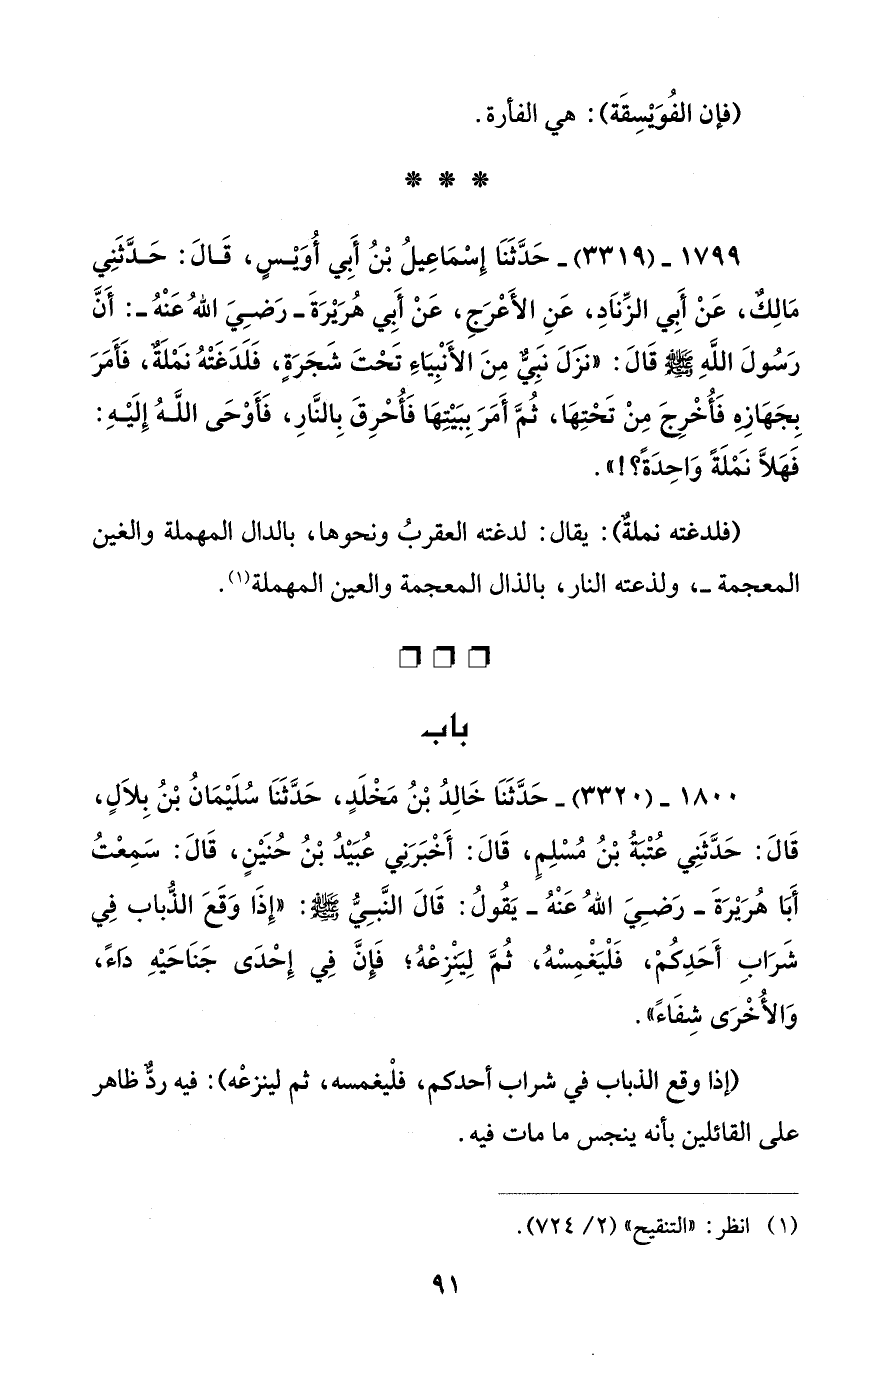 (فإن الفُوَيْسِقَة): هي الفأرة.
* * *
١٧٩٩ ـ (٣٣١٩) ـ حَدَّثَنَا إِسْمَاعِيلُ بْنُ أَبِي أُوَيْـسٍ، قَـالَ: حَـدَّثَنِي
مَالِكٌ، عَنْ أَبِي الزِّنَادِ، عَنِ الأَعْرَجِ، عَنْ أَبِي هُرَيْرَةَ ـ رَضـِيَ اللهُ عَنْهُ ـ: أَنَّ
رَسُولَ اللَّهِ ﷺ قَالَ: «نَزَلَ نَبِيٌّ مِنَ الأَنْبِيَاءِ تَحْتَ شَجَرَةٍ، فَلَدَغَتْهُ نَمْلَةٌ، فَأَمَرَ
بِجَهَازِهِ فَأُخْرِجَ مِنْ تَحْتِهَا، ثُمَّ أَمَرَ بِبَيْتِهَا فَأُحْرِقَ بِالنَّارِ، فَأَوْحَى اللَّـهُ إِلَيْـهِ:
فَهَلاَّ نَمْلَةً وَاحِدَةً؟!».
(فلدغته نملةٌ): يقال: لدغته العقربُ ونحوها، بالدال المهملة والغين
المعجمة ـ، ولذعته النار، بالذال المعجمة والعين المهملة(١).
❒ ❒ ❒
باب
١٨٠٠ ـ (٣٣٢٠) ـ حَدَّثَنَا خَالِدُ بْنُ مَخْلَدٍ، حَدَّثَنَا سُلَيْمَانُ بْنُ بِلاَلٍ،
قَالَ: حَدَّثَنِي عُتْبَةُ بْنُ مُسْلِمٍ، قَالَ: أَخْبَرَنِي عُبَيْدُ بْنُ حُنَيْنٍ، قَالَ: سَمِعْتُ
أَبَا هُرَيْرَةَ ـ رَضـِيَ اللهُ عَنْهُ ـ يَقُولُ: قَالَ النَّبِـيُّ ﷺ: «إِذَا وَقَعَ الذُّباب فِي
شَرَابِ أَحَدِكُمْ، فَلْيَغْمِسْهُ، ثُمَّ لِيَنْزِعْهُ؛ فَإِنَّ فِي إِحْدَى جَنَاحَيْهِ دَاءً،
وَالأُخْرَى شِفَاءً».
(إذا وقع الذباب في شراب أحدكم، فلْيغمسه، ثم لينزعْه): فيه ردٌّ ظاهر
على القائلين بأنه ينجس ما مات فيه.
(١) انظر: «التنقيح» (٢/ ٧٢٤).
٩١